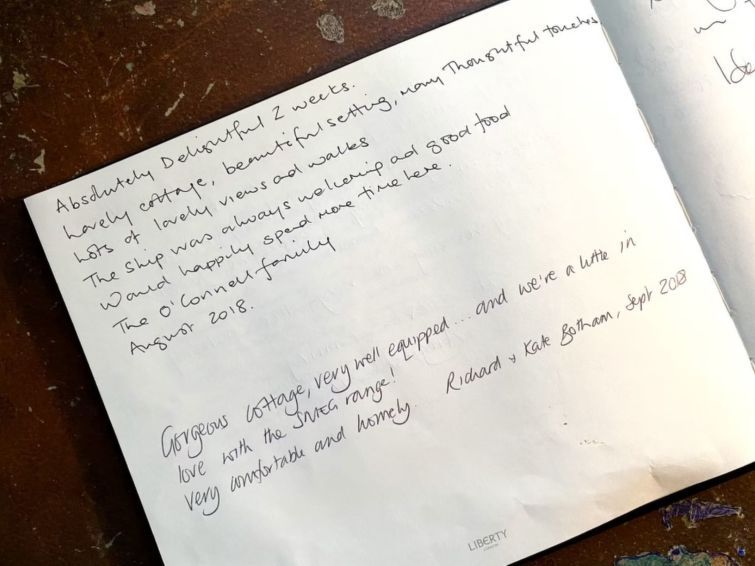 Absolutely Delightful 2 weeks.
Lovely cottage, beautiful setting, many thoughtful touches
Lots of lovely views and walks
The Ship was always welcoming and good food
Would happily spend more time here.
The O'Connell family
August 2018.
Gorgeous cottage, very well equipped... and we're a little in
love with the SMEG range!
Very comfortable and homely. Richard + Kate Botham, Sept 2018
LIBERTY